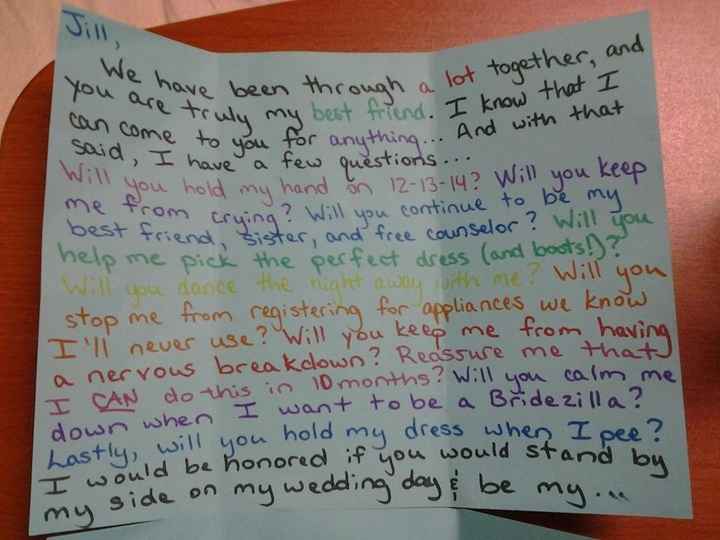 Jill,
We have been through a lot together, and
you are truly my best friend. I know that I
can come to you for anything... And with that
said, I have a few questions...
Will you hold my hand on 12-13-14? Will you keep
me from crying? Will you continue to be my
best friend, sister, and free counselor? Will you
help me pick the perfect dress (and boots!)?
Will you dance the night away with me? Will you
stop me from registering for appliances we know
I'll never use? Will you keep me from having
a nervous breakdown? Reassure me that
I CAN do this in 10 months? Will you calm me
down when I want to be a Bridezilla?
Lastly, will you hold my dress when I pee?
I would be honored if you would stand by
my side on my wedding day & be my...